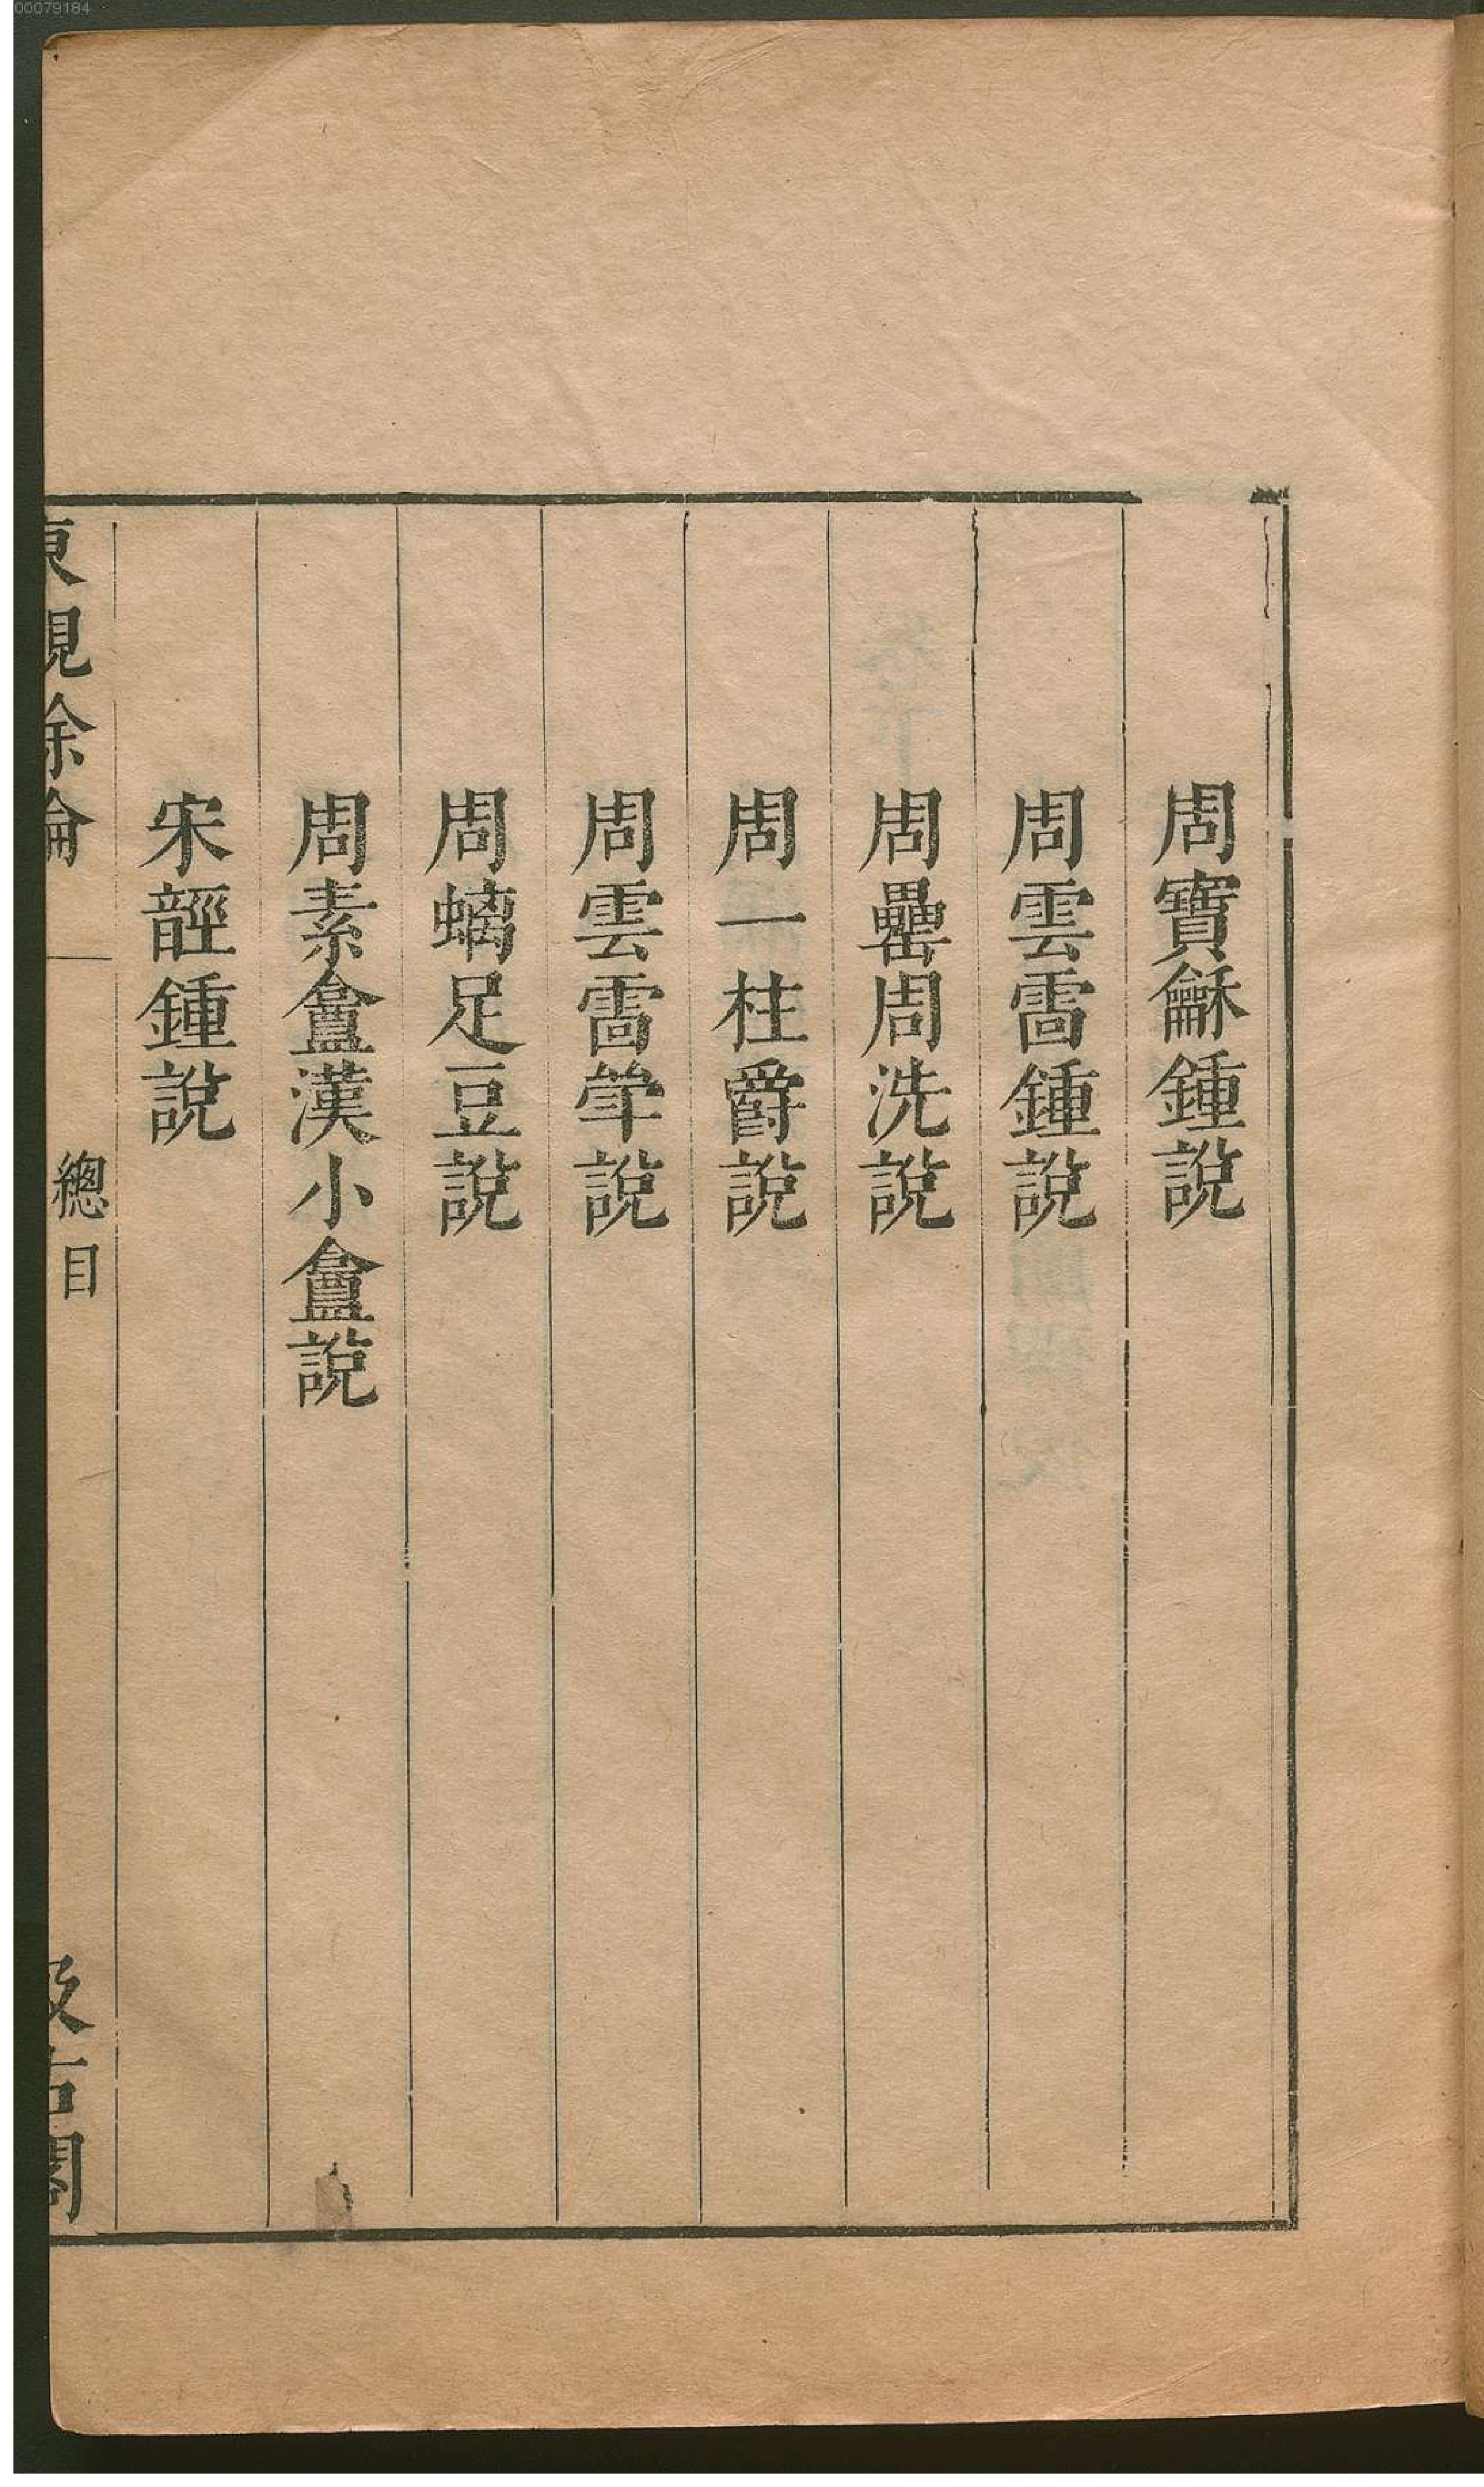 00079184
周寶龢鍾說
周雲雷鍾說
周罍周洗說
周一柱爵說
周雲雷斝說
周螭足豆說
周素盦漢小盦說
宋䪫鍾說
東觀餘論
總目
汲古閣